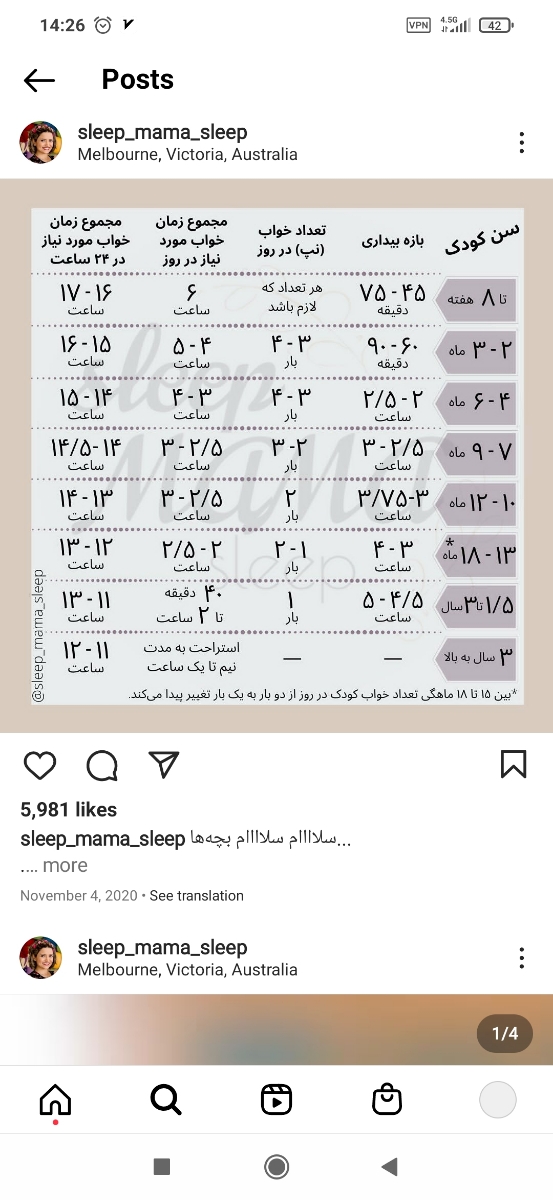 14:26
VPN 4.5G 42
Posts
sleep_mama_sleep
Melbourne, Victoria, Australia
سن کودک
بازه بیداری
تعداد خواب
(نپ) در روز
مجموع زمان
خواب مورد
نیاز در روز
مجموع زمان
خواب مورد نیاز
در ۲۴ ساعت
تا ۸ هفته
۴۵ - ۷۵
دقیقه
هر تعداد که
لازم باشد
۶
ساعت
۱۶ - ۱۷
ساعت
۲ - ۳ ماه
۶۰ - ۹۰
دقیقه
۳ - ۴
بار
۴ - ۵
ساعت
۱۵ - ۱۶
ساعت
۴ - ۶ ماه
۲ - ۲/۵
ساعت
۳ - ۴
بار
۳ - ۴
ساعت
۱۴ - ۱۵
ساعت
۷ - ۹ ماه
۲/۵ - ۳
ساعت
۲ - ۳
بار
۲/۵ - ۳
ساعت
۱۴ - ۱۴/۵
ساعت
۱۰ - ۱۲ ماه
۳ - ۳/۷۵
ساعت
۲
بار
۲/۵ - ۳
ساعت
۱۳ - ۱۴
ساعت
۱۳ - ۱۸ ماه*
۳ - ۴
ساعت
۱ - ۲
بار
۲ - ۲/۵
ساعت
۱۲ - ۱۳
ساعت
۱/۵ تا ۳ سال
۴/۵ - ۵
ساعت
۱
بار
۴۰ دقیقه
تا ۲ ساعت
۱۱ - ۱۳
ساعت
۳ سال به بالا
—
—
استراحت به مدت
نیم تا یک ساعت
۱۱ - ۱۲
ساعت
*بین ۱۵ تا ۱۸ ماهگی تعداد خواب کودک در روز از دو بار به یک بار تغییر پیدا می‌کند.
@sleep_mama_sleep
sleep mama sleep
5,981 likes
sleep_mama_sleep سلاااام سلاااام بچه‌ها...
.... more
November 4, 2020 • See translation
sleep_mama_sleep
Melbourne, Victoria, Australia
1/4